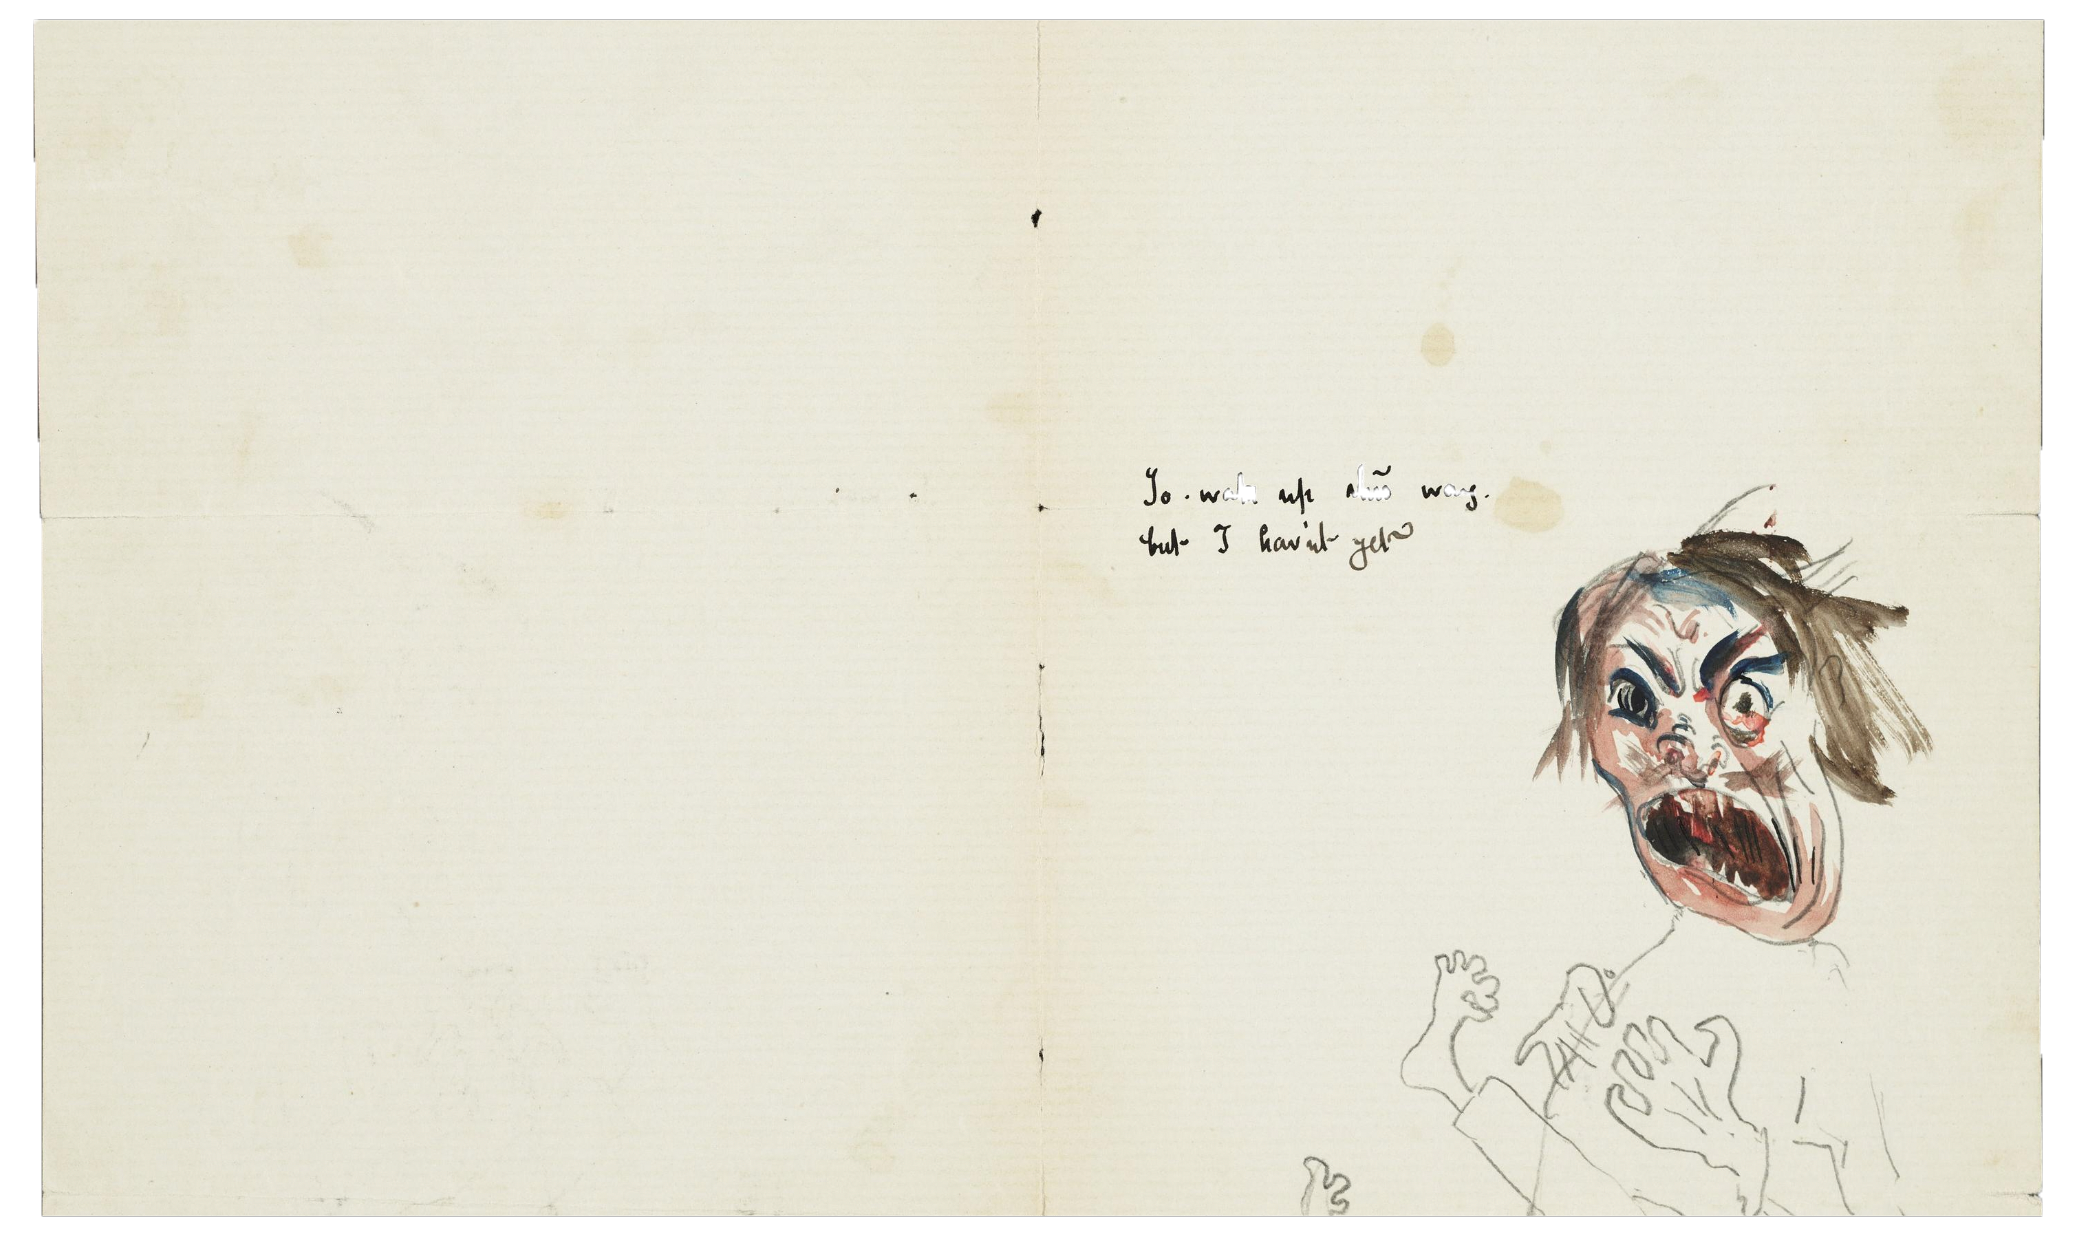 To wake up this way.
but I hav'nt yet